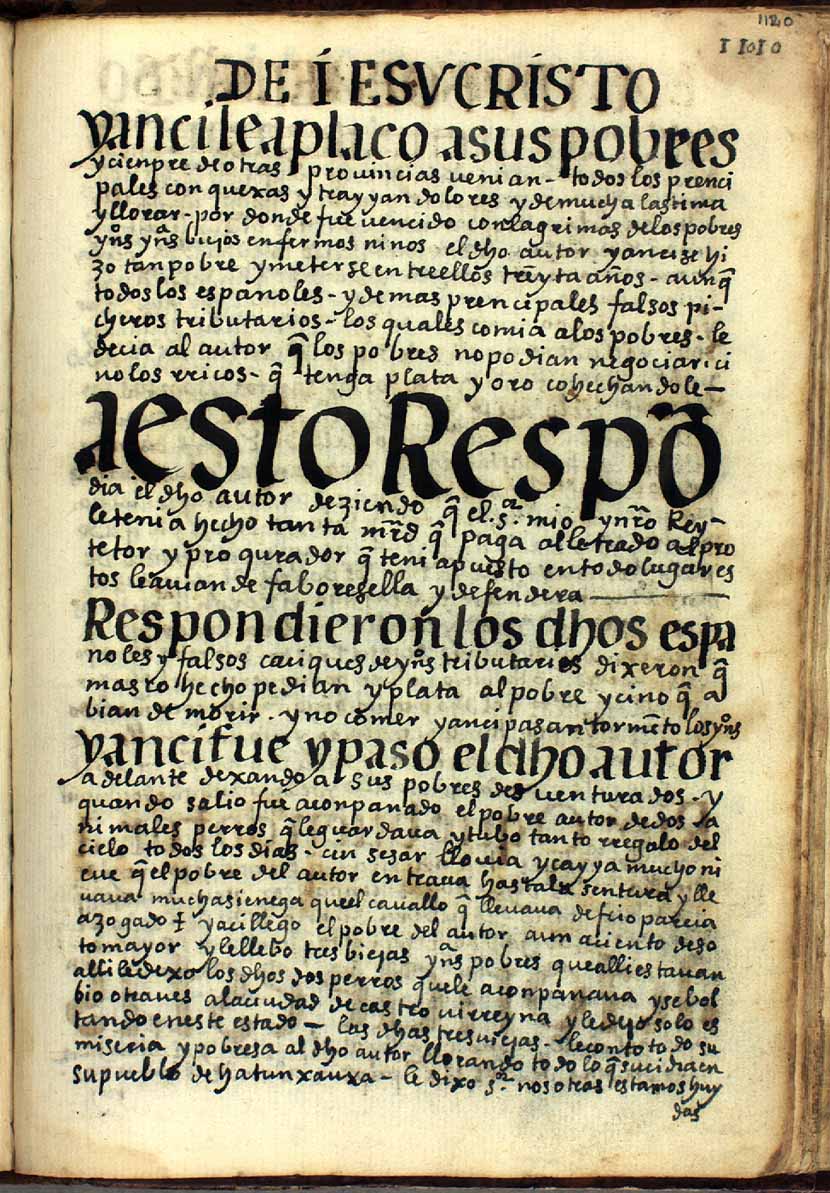 1120
11010
DE ÍESVCRÍSTO
yanci le aplaco a sus pobres
y cienpre de otras provincias venian - todos los prenci
pales con quexas y trayyan dolores y de mucha lastima
y llorar - por donde fue vencido con lagrimas de los pobres
yn͂s yn͂s biejos enfermos ninos el dho autor y anci se hi
zo tan pobre y meterse entre ellos treynta años - aunq̃
todos los espanoles - y demas prencipales falsos pi-
cheros tributarios - los quales comia a los pobres - le
decia al autor q̃ los pobres no podian negociar - ci
no los rricos - q̃ tenga plata y oro cohechandole —
a esto Respõ
dia el dho autor deziendo q̃ el s.r mio y nr̃o Rey -
le tenia hecho tanta mr̃d q̃ paga al letrado al pro
tetor y procurador q̃ teni apuesto en todo lugar es
tos le avian de faboresella y defendera —
Respondieron los dhos espa
noles y falsos caciques de yn͂s tributarios dixeron q̃
mas ro hecho pedian y plata al pobre y cino q̃ a
bian de morir - y no comer y anci pasan tormẽto los yn͂s
yanci fue y paso el dho autor
adelante dexando a sus pobres desventurados - y
quando salio fue aconpanado el pobre autor de dos a
nimales perros q̃ le guardava y tubo tanto rregalo del
cielo todos los días - cin sesar llovia y cayya mucho ni
eve q̃ el pobre del autor entrava hasta la sentura y lle
vava mucha sienega que el cavallo q̃ llevava de frio parecia
azogado ✝ y aci llego el pobre del autor a un aciento de so
tomayor y le llebo tres biejas yn͂s pobres que alli estavan
alli le dexo los dhos dos perros que le aconpanava y se bol
bio otra ves a la ciudad de castrovirreyna y le dejo solo es
tando en este estado — las dhas tres viejas - le conto todo su
miseria y pobresa al dho autor llorando todo lo q̃ sucidia en
su pueblo de hatun xauxa - le dixo s.r nosotras estamos huy
das